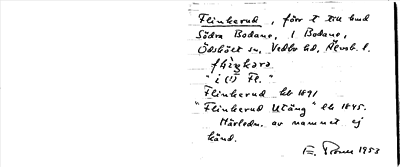 Flinkerud, förr t till hmd
Södra Bodane, l Bodane,
Ödskölt sn, Vedbo hd, Älvsb. l.
"i (!) Fl."
Flinkerud hk 1891
"Flinkerud Utäng" hk 1845.
Härledn. av namnet ej
känd.
1953